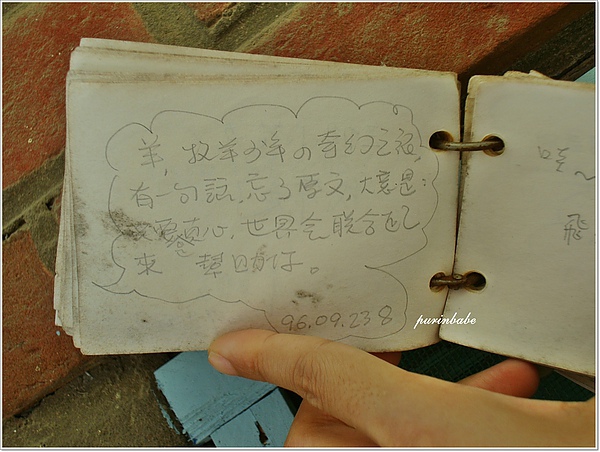 羊,牧羊少年の奇幻之旅,
有一句話,忘了原文,大意是:
要真心,世界會联合起
來 幫助你。
96.09.23 8
purinbabe
哇~
飛